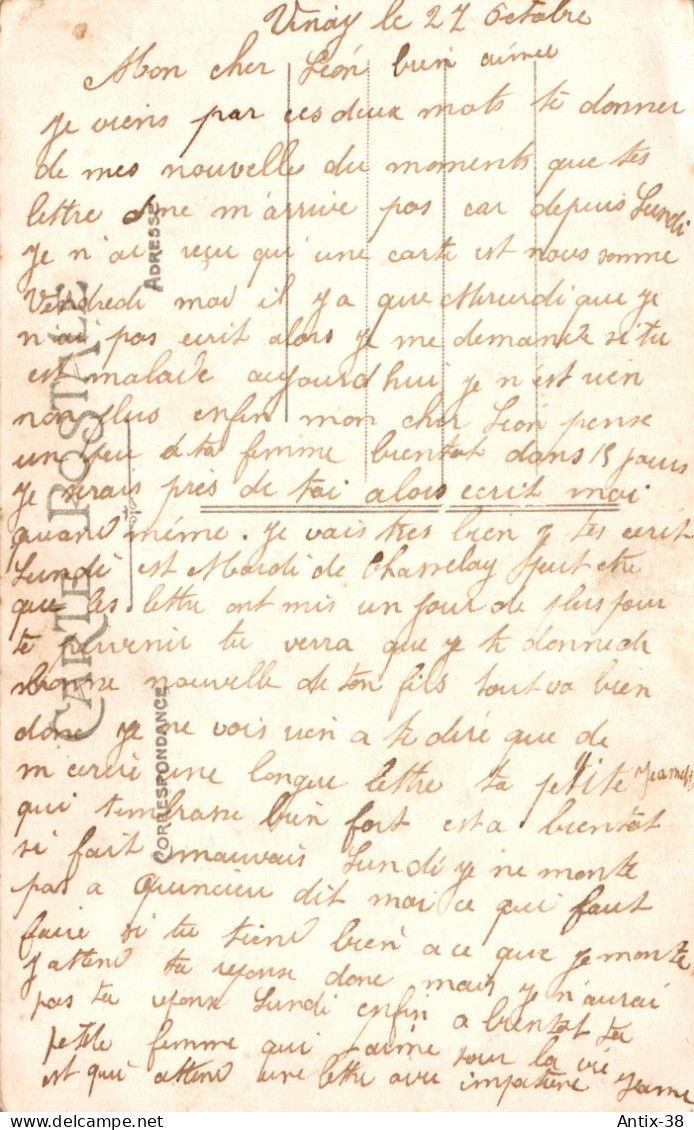 Vinay le 27 Octobre
Mon cher Léon bien aimée
je viens par ces deux mots te donner
de mes nouvelles du moments que tes
lettre ne m'arrive pas car depuis Lundi
je n'ai reçu qu'une carte est nous somme
Vendredi moi il y a que Mercredi que je
n'ai pas ecrit alors je me demande si tu
est malade aujourd'hui je n'est rien
non plus enfin mon cher Léon pense
un peu a ta femme bientot dans 15 jours
je serais près de toi alors ecrit moi
quand même. je vais tres bien je tes ecrit
Lundi est Mardi de Chasselay peut etre
que les lettre ont mis un jour de plus pour
te parvenir tu verra que je te donne de
bonne nouvelle de ton fils tout va bien
donc je ne vois rien a te dire que de
une longue lettre ta petite Jeanne
qui t'embrasse bien fort est a bientot
si fait mauvais Lundi je ne monte
pas a Quincieu dit moi ce qui faut
faire si tu tiend bien a ce que je monte
j'attend ta reponse donc mais je n'aurai
pas ta reponse Lundi enfin a bientot ta
petite femme qui t'aime pour la vie
est qui attend une lettre avec impatiene Jeanne
CARTE POSTALE
CORRESPONDANCE
ADRESSE
Antix-38